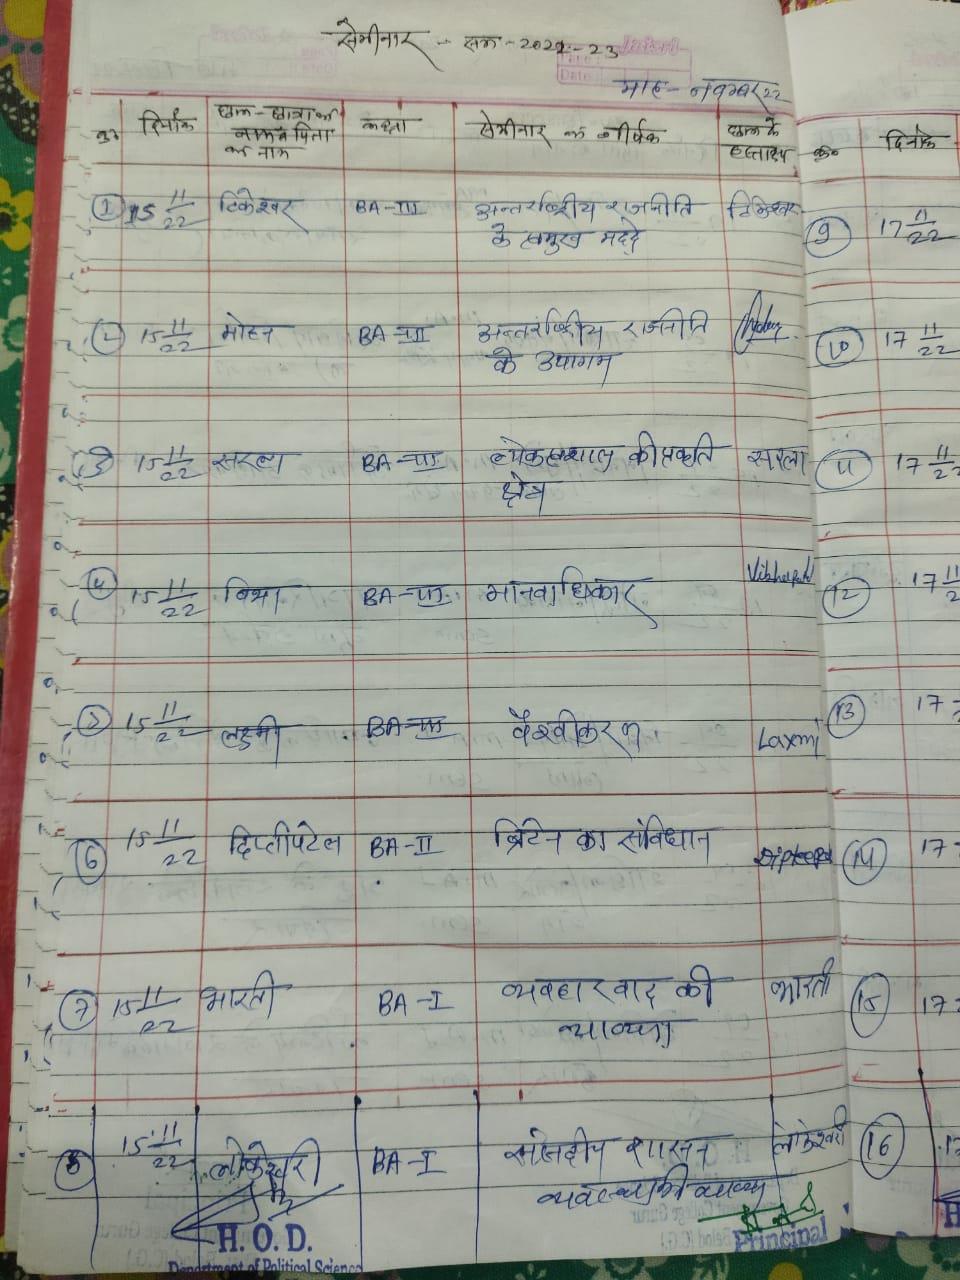 सेमीनार - सत्र - 2022-23
Date:
माह - नवम्बर 22
क्र० दिनाँक छात्र-छात्रा का नाम व पिता का नाम कक्षा सेमीनार का शीर्षक छात्र के हस्ताक्षर
① 15 11/22 टिकेश्वर BA-III अन्तर्राष्ट्रीय राजनीति टिकेश्वर
के प्रमुख मुद्दे
② 15 11/22 मोहन BA-III अन्तर्राष्ट्रीय राजनीति
के उपागम
③ 15 11/22 सरला BA-III लोकप्रशासन की प्रकृति सरला
क्षेत्र
④ 15 11/22 विभा BA-III मानवाधिकार
⑤ 15 11/22 लक्ष्मी BA-III वैश्वीकरण Laxmi
⑥ 15 11/22 दिप्ती पटेल BA-II ब्रिटेन का संविधान
⑦ 15 11/22 भारती BA-I व्यवहारवाद की भारती
व्याख्या
⑧ 15 11/22 लोकेश्वरी BA-I संसदीय शासन लोकेश्वरी
व्यवस्था की व्याख्या
H.O.D.
Department of Political Science
Principal
क्र० दिनाँक
⑨ 17 11/22
⑩ 17 11/22
⑪ 17 11/22
⑫ 17 11
⑬ 17
⑭ 17
⑮ 17
⑯
H